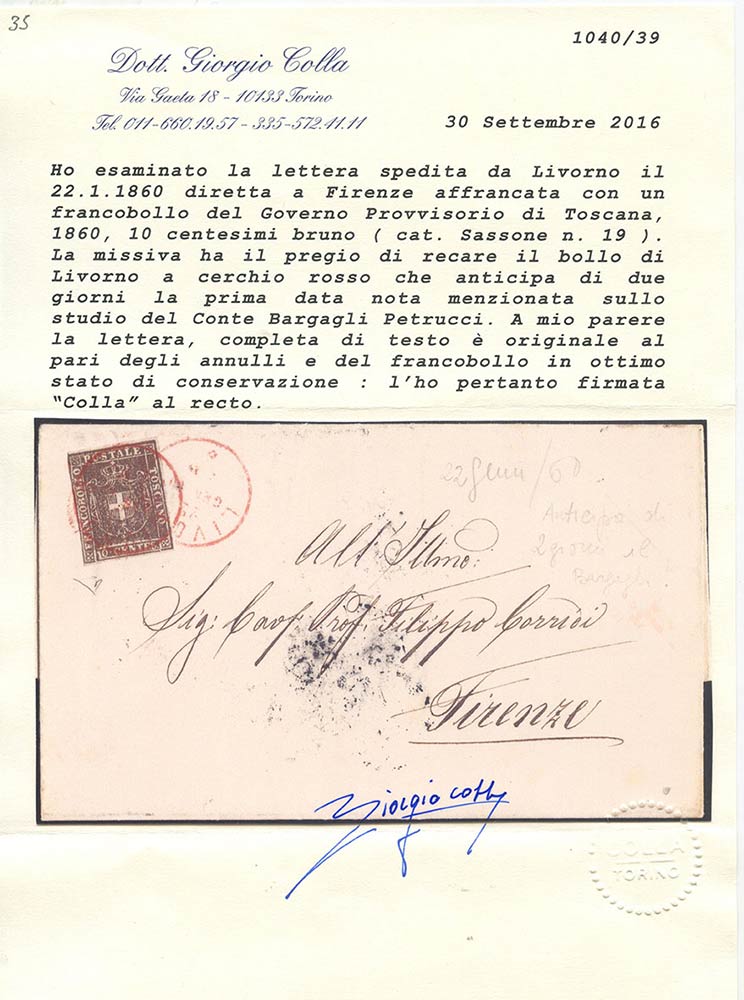 35
1040/39
Dott. Giorgio Colla
Via Gaeta 18 - 10133 Torino
Tel. 011-660.19.57 - 335-572.41.11
30 Settembre 2016
Ho esaminato la lettera spedita da Livorno il
22.1.1860 diretta a Firenze affrancata con un
francobollo del Governo Provvisorio di Toscana,
1860, 10 centesimi bruno ( cat. Sassone n. 19 ).
La missiva ha il pregio di recare il bollo di
Livorno a cerchio rosso che anticipa di due
giorni la prima data nota menzionata sullo
studio del Conte Bargagli Petrucci. A mio parere
la lettera, completa di testo è originale al
pari degli annulli e del francobollo in ottimo
stato di conservazione : l'ho pertanto firmata
"Colla" al recto.
FRANCOBOLLO
POSTALE
TOSCANO
10 CENTES
LIVO
22 Genn/60
Anticipa di
2 giorni il
Bargagli!
All' Illmo:
Sig: Cavf. Prof. Filippo Corridi
Firenze
Giorgio Colla
COLLA
TORINO